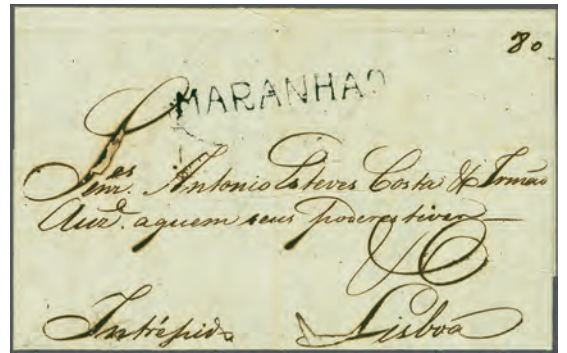 80
MARANHAO
Senr.es Antonio Esteves Costa & Irmão
Auz.e aquem seus poderes tiver
Intrépido
Lisboa